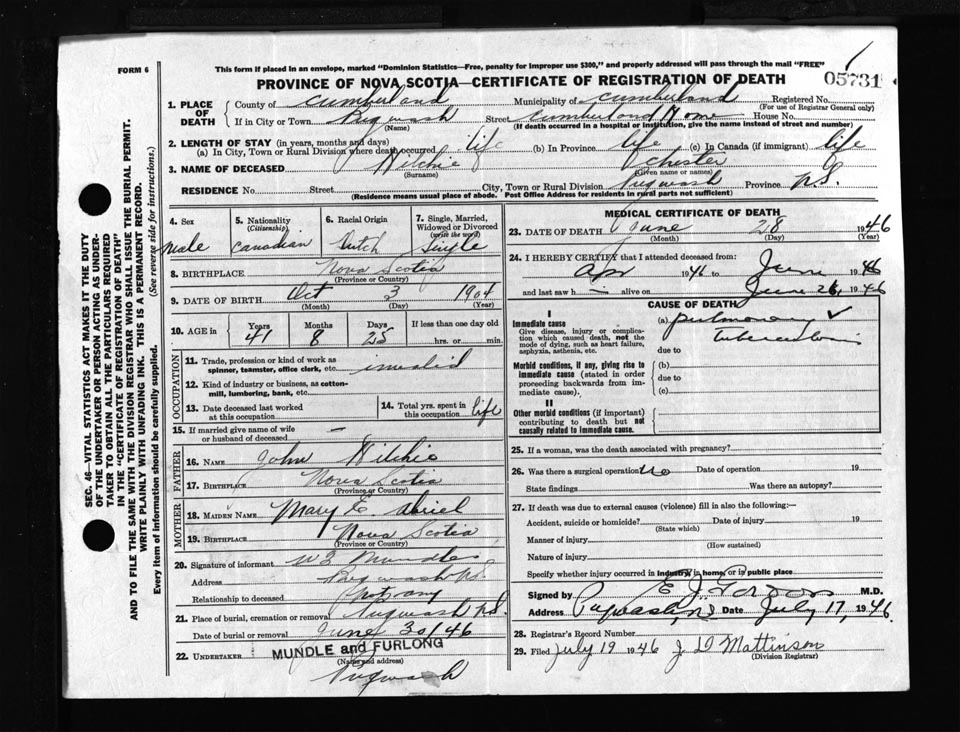 FORM 6
This form if placed in an envelope, marked "Dominion Statistics—Free, penalty for improper use $300," and properly addressed will pass through the mail "FREE"
PROVINCE OF NOVA SCOTIA—CERTIFICATE OF REGISTRATION OF DEATH
05731
1. PLACE OF DEATH County of Cumberland Municipality of Cumberland Registered No.
(For use of Registrar General only)
If in City or Town Pugwash Street Cumberland Home House No.
(Name) (If death occurred in a hospital or institution, give the name instead of street and number)
2. LENGTH OF STAY (in years, months and days)
(a) In City, Town or Rural Division where death occurred life (b) In Province life (c) In Canada (if immigrant) life
3. NAME OF DECEASED Chester
(Surname) (Given name or names)
RESIDENCE No. Street City, Town or Rural Division Pugwash Province N.S.
(Residence means usual place of abode. Post Office Address for residents in rural parts not sufficient)
4. Sex male
5. Nationality (Citizenship) Canadian
6. Racial Origin Dutch
7. Single, Married, Widowed or Divorced (write the word) Single
8. BIRTHPLACE Nova Scotia
(Province or Country)
9. DATE OF BIRTH Oct 3 1904
(Month) (Day) (Year)
10. AGE in Years Months Days If less than one day old
41 8 25 hrs. or min.
OCCUPATION
11. Trade, profession or kind of work as spinner, teamster, office clerk, etc. invalid
12. Kind of industry or business, as cotton-mill, lumbering, bank, etc.
13. Date deceased last worked at this occupation
14. Total yrs. spent in this occupation life
15. If married give name of wife or husband of deceased —
FATHER
16. NAME John
17. BIRTHPLACE Nova Scotia
(Province or Country)
MOTHER
18. MAIDEN NAME Mary E
19. BIRTHPLACE Nova Scotia
(Province or Country)
20. Signature of informant
Address Pugwash N.S.
Relationship to deceased not any
21. Place of burial, cremation or removal Pugwash N.S.
Date of burial or removal June 30/46
22. UNDERTAKER MUNDLE and FURLONG
(Name and address)
Pugwash
MEDICAL CERTIFICATE OF DEATH
23. DATE OF DEATH June 28 1946
(Month) (Day) (Year)
24. I HEREBY CERTIFY that I attended deceased from:
Apr 1946 to June 1946
and last saw h im alive on June 26, 1946
CAUSE OF DEATH
I
Immediate cause
Give disease, injury or complication which caused death, not the mode of dying, such as heart failure, asphyxia, asthenia, etc.
(a) pulmonary ✓
tuberculosis
due to
Morbid conditions, if any, giving rise to immediate cause (stated in order proceeding backwards from immediate cause).
(b)
due to
(c)
II
Other morbid conditions (if important) contributing to death but not causally related to immediate cause.
25. If a woman, was the death associated with pregnancy?
26. Was there a surgical operation No Date of operation 19
State findings Was there an autopsy?
27. If death was due to external causes (violence) fill in also the following:—
Accident, suicide or homicide? Date of injury 19
(State which)
Manner of injury
(How sustained)
Nature of injury
Specify whether injury occurred in industry, in home, or in public place
Signed by M.D.
Address Pugwash, NS Date July 17, 1946
28. Registrar's Record Number
29. Filed July 19 1946 J D Mattinson
(Division Registrar)
SEC. 46—VITAL STATISTICS ACT MAKES IT THE DUTY
OF THE UNDERTAKER OR PERSON ACTING AS UNDER-
TAKER TO OBTAIN ALL THE PARTICULARS REQUIRED
IN THE "CERTIFICATE OF REGISTRATION OF DEATH"
AND TO FILE THE SAME WITH THE DIVISION REGISTRAR WHO SHALL ISSUE THE BURIAL PERMIT.
WRITE PLAINLY WITH UNFADING INK. THIS IS A PERMANENT RECORD.
Every item of information should be carefully supplied. (See reverse side for instructions.)